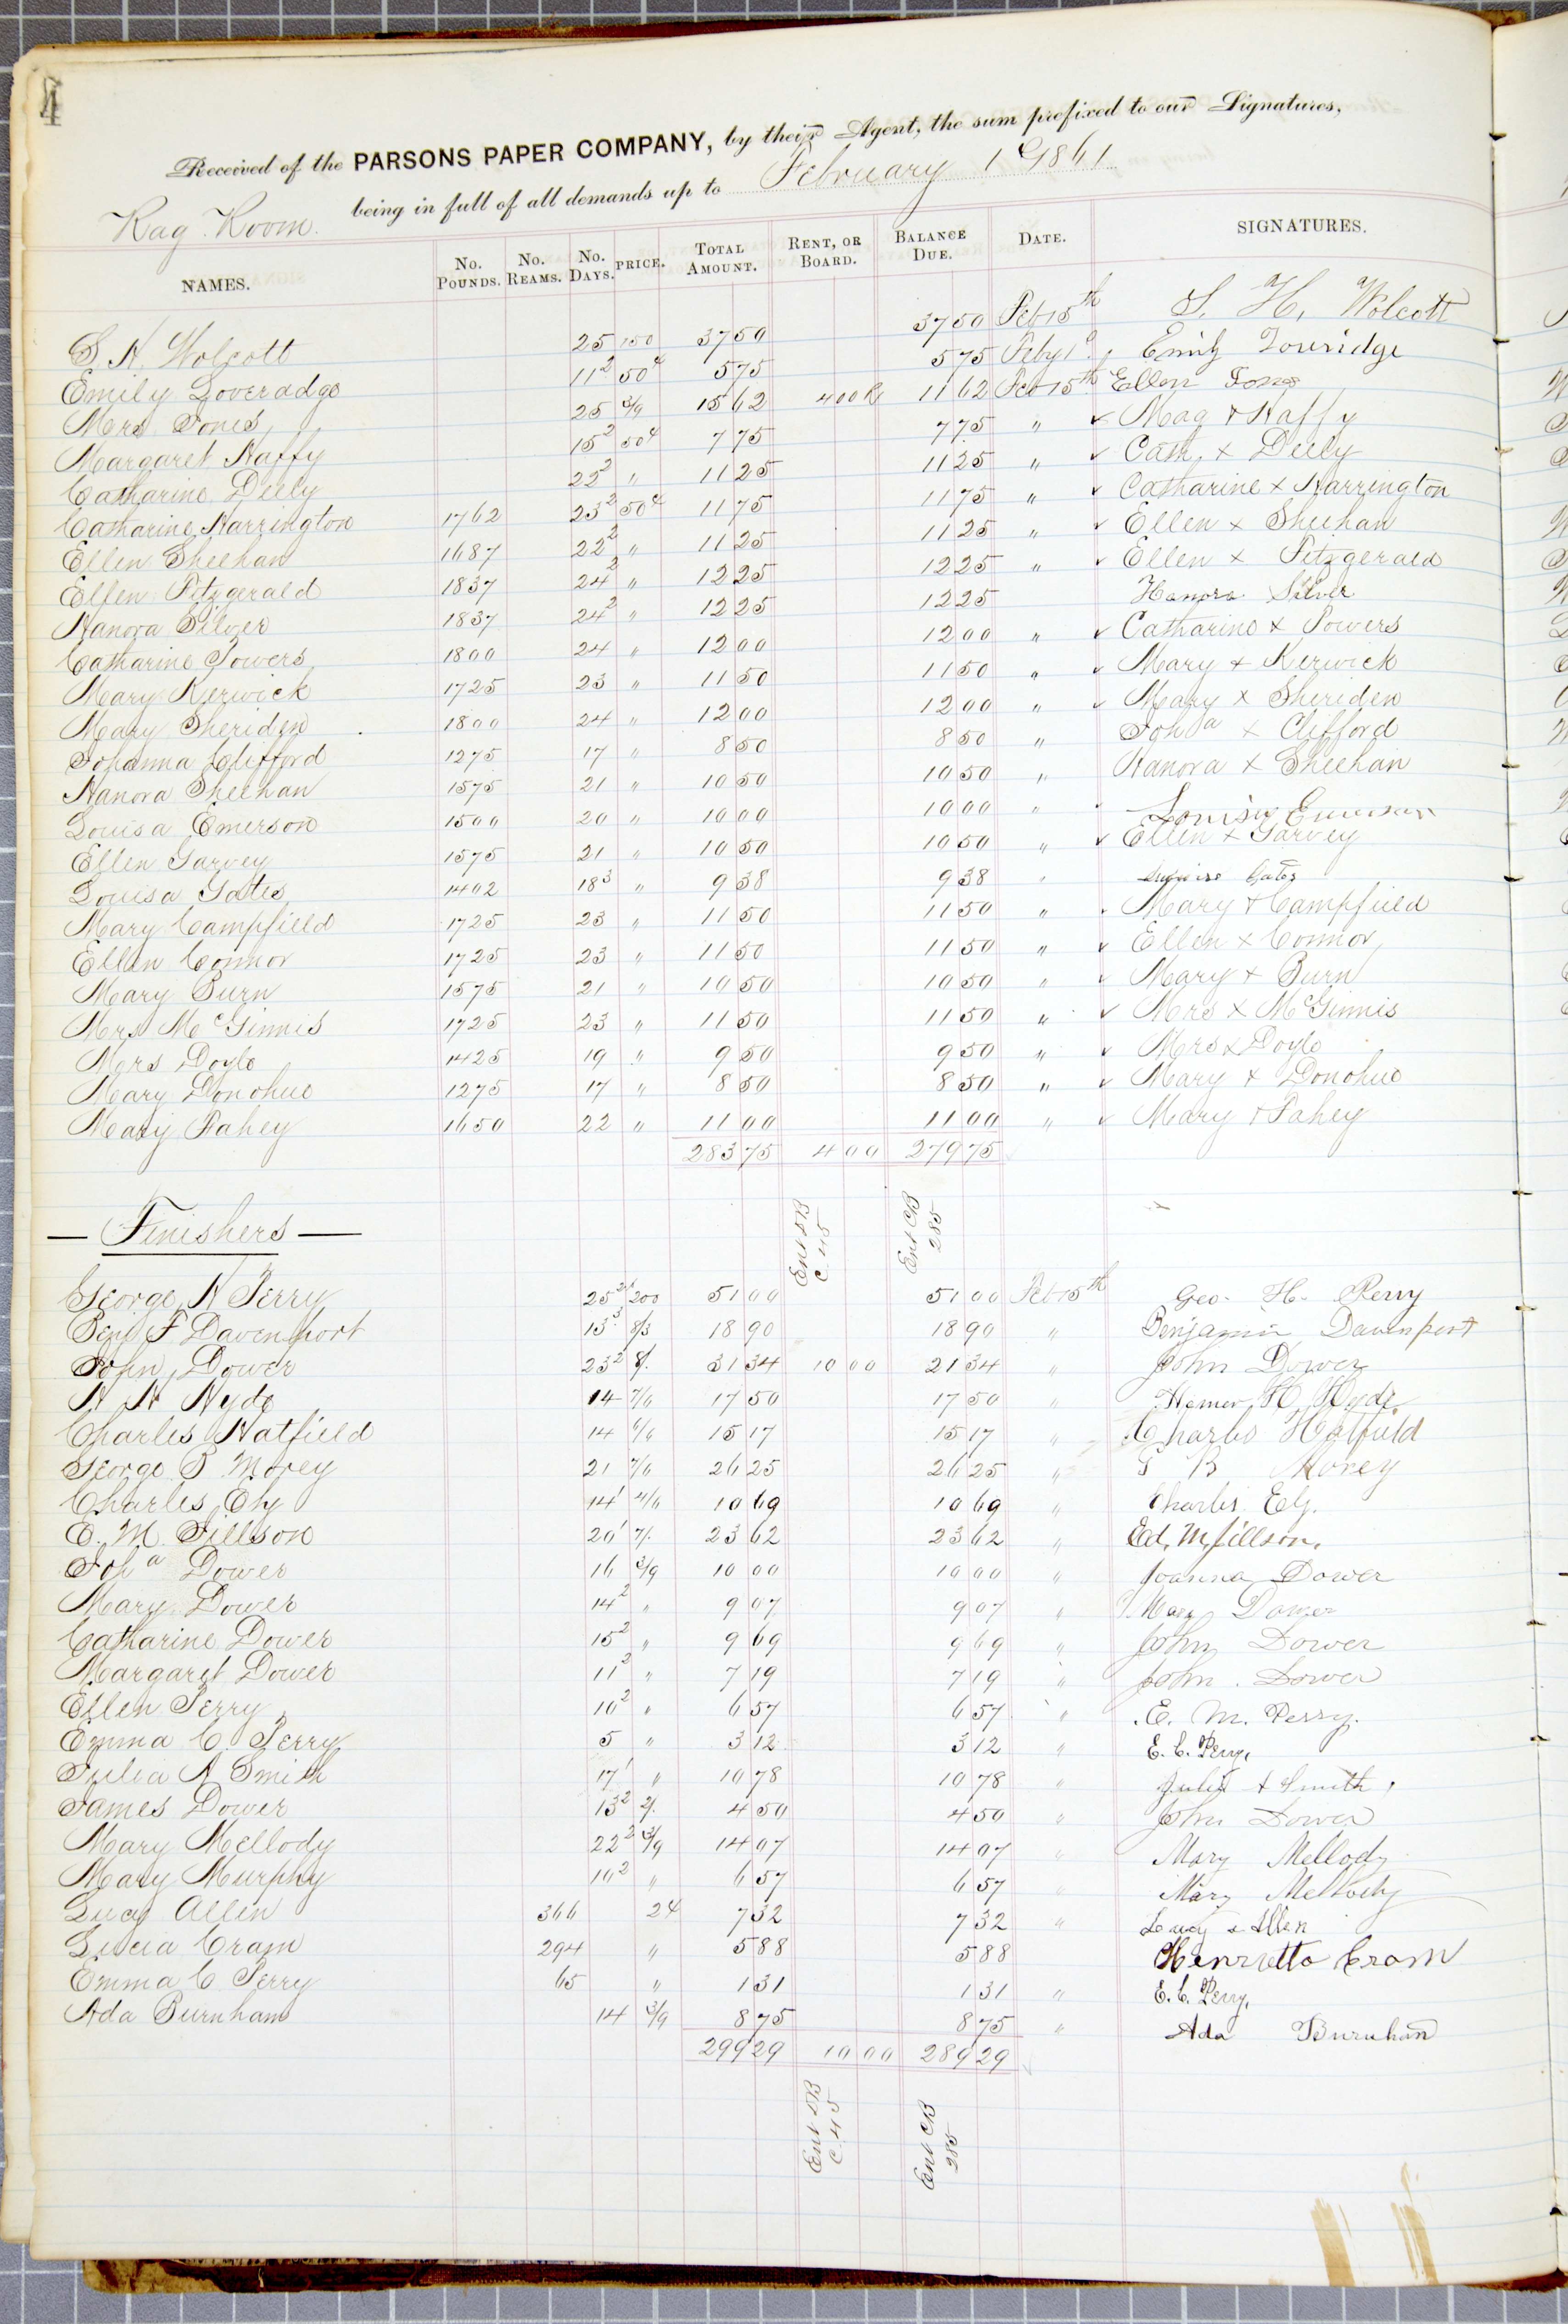 4
Received of the PARSONS PAPER COMPANY, by their Agent, the sum prefixed to our Signatures,
being in full of all demands up to February 1st 1861
Rag Room.
NAMES. No. Pounds. No. Reams. No. Days. PRICE. Total Amount. Rent, or Board. Balance Due. Date. SIGNATURES.
S. H. Wolcott 25 150 37 50 37 50 Feb 15th S. H. Wolcott
Emily Loveradge 11² 50¢ 5 75 5 75 Feby 1st Emily Loveridge
Mrs. Jones 25 3/9 15 62 4 00 R 11 62 Feb 15th Ellen Jones
Margaret Haffy 15² 50¢ 7 75 7 75 " ✓ Mag + Haffy
Catharine Deely 22² " 11 25 11 25 " ✓ Cath. x Deely
Catharine Harrington 1762 23² 50¢ 11 75 11 75 " ✓ Catharine x Harrington
Ellen Sheehan 1687 22² " 11 25 11 25 " ✓ Ellen x Sheehan
Ellen Fitzgerald 1837 24² " 12 25 12 25 " ✓ Ellen x Fitzgerald
Hanora Silver 1837 24² " 12 25 12 25 Hanora Silver
Catharine Powers 1800 24 " 12 00 12 00 " ✓ Catharine x Powers
Mary Kerwick 1725 23 " 11 50 11 50 " ✓ Mary + Kerwick
Mary Sheriden 1800 24 " 12 00 12 00 " ✓ Mary x Sheriden
Johanna Clifford 1275 17 " 8 50 8 50 " Joha x Clifford
Hanora Sheehan 1575 21 " 10 50 10 50 " Hanora x Sheehan
Louisa Emerson 1500 20 " 10 00 10 00 " Louisa Emerson
Ellen Garvey 1575 21 " 10 50 10 50 " ✓ Ellen x Garvey
Louisa Gates 1402 18³ " 9 38 9 38 " Gates
Mary Campfield 1725 23 " 11 50 11 50 " Mary + Campfield
Ellen Connor 1725 23 " 11 50 11 50 " ✓ Ellen x Connor
Mary Burn 1575 21 " 10 50 10 50 " ✓ Mary + Burn
Mrs McGinnis 1725 23 " 11 50 11 50 " ✓ Mrs x McGinnis
Mrs Doyle 1425 19 " 9 50 9 50 " ✓ Mrs x Doyle
Mary Donohue 1275 17 " 8 50 8 50 " ✓ Mary + Donohue
Mary Fahey 1650 22 " 11 00 11 00 " ✓ Mary + Fahey
283 75 4 00 279 75
Ent DB C. 45
Ent CB 285
— Finishers —
George H Perry 25² 200 51 00 51 00 Feb 15th Geo. H. Perry
Benj F Davenport 13³ 8/3 18 90 18 90 " Benjamin Davenport
John Dower 23² 8/. 31 34 10 00 21 34 " John Dower
H H Hyde 14 7/6 17 50 17 50 " Homer H. Hyde
Charles Hatfield 14 6/6 15 17 15 17 " Charles Hatfield
George B Morey 21 7/6 26 25 26 25 " G B Morey
Charles Ely 14¹ 4/6 10 69 10 69 " Charles Ely.
E. M. Jillson 20¹ 7/. 23 62 23 62 " Ed. M. Jillson.
Joha Dower 16 3/9 10 00 10 00 " Joanna Dower
Mary Dower 14² " 9 07 9 07 " Mary Dower
Catharine Dower 15² " 9 69 9 69 " John Dower
Margaret Dower 11² " 7 19 7 19 " John Dower
Ellen Perry 10² " 6 57 6 57 " E. M. Perry.
Emma C. Perry 5 " 3 12 3 12 " E. C. Perry,
Julia A Smith 17¹ " 10 78 10 78 " Julia + Smith,
James Dower 13² 2/. 4 50 4 50 " John Dower
Mary Mellody 22² 3/9 14 07 14 07 " Mary Mellody
Mary Murphy 10² " 6 57 6 57 " Mary Mellody
Lucy Allen 366 24 7 32 7 32 " Lucy x Allen
Lucia Cram 294 " 5 88 5 88 Henrietta Cram
Emma C Perry 65 " 1 31 1 31 " E. C. Perry,
Ada Burnham 14 3/9 8 75 8 75 " Ada Burnham
299 29 10 00 289 29
Ent DB C. 45
Ent CB 285